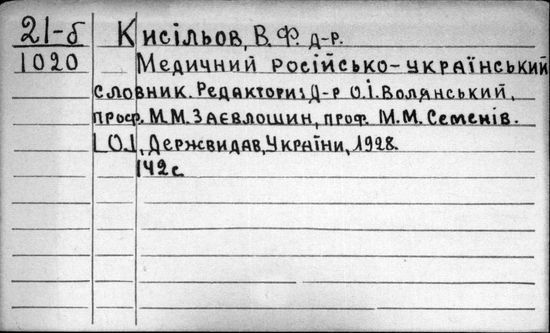 21-б Кисільов, В.Ф. д-р.
1020 Медичний російсько-український
словник. Редактори: Д-р О.І. Волянський,
проф. М.М. Заєвлошин, проф. М.М. Семенів.
[О.], Держвидав, України, 1928.
142 с.